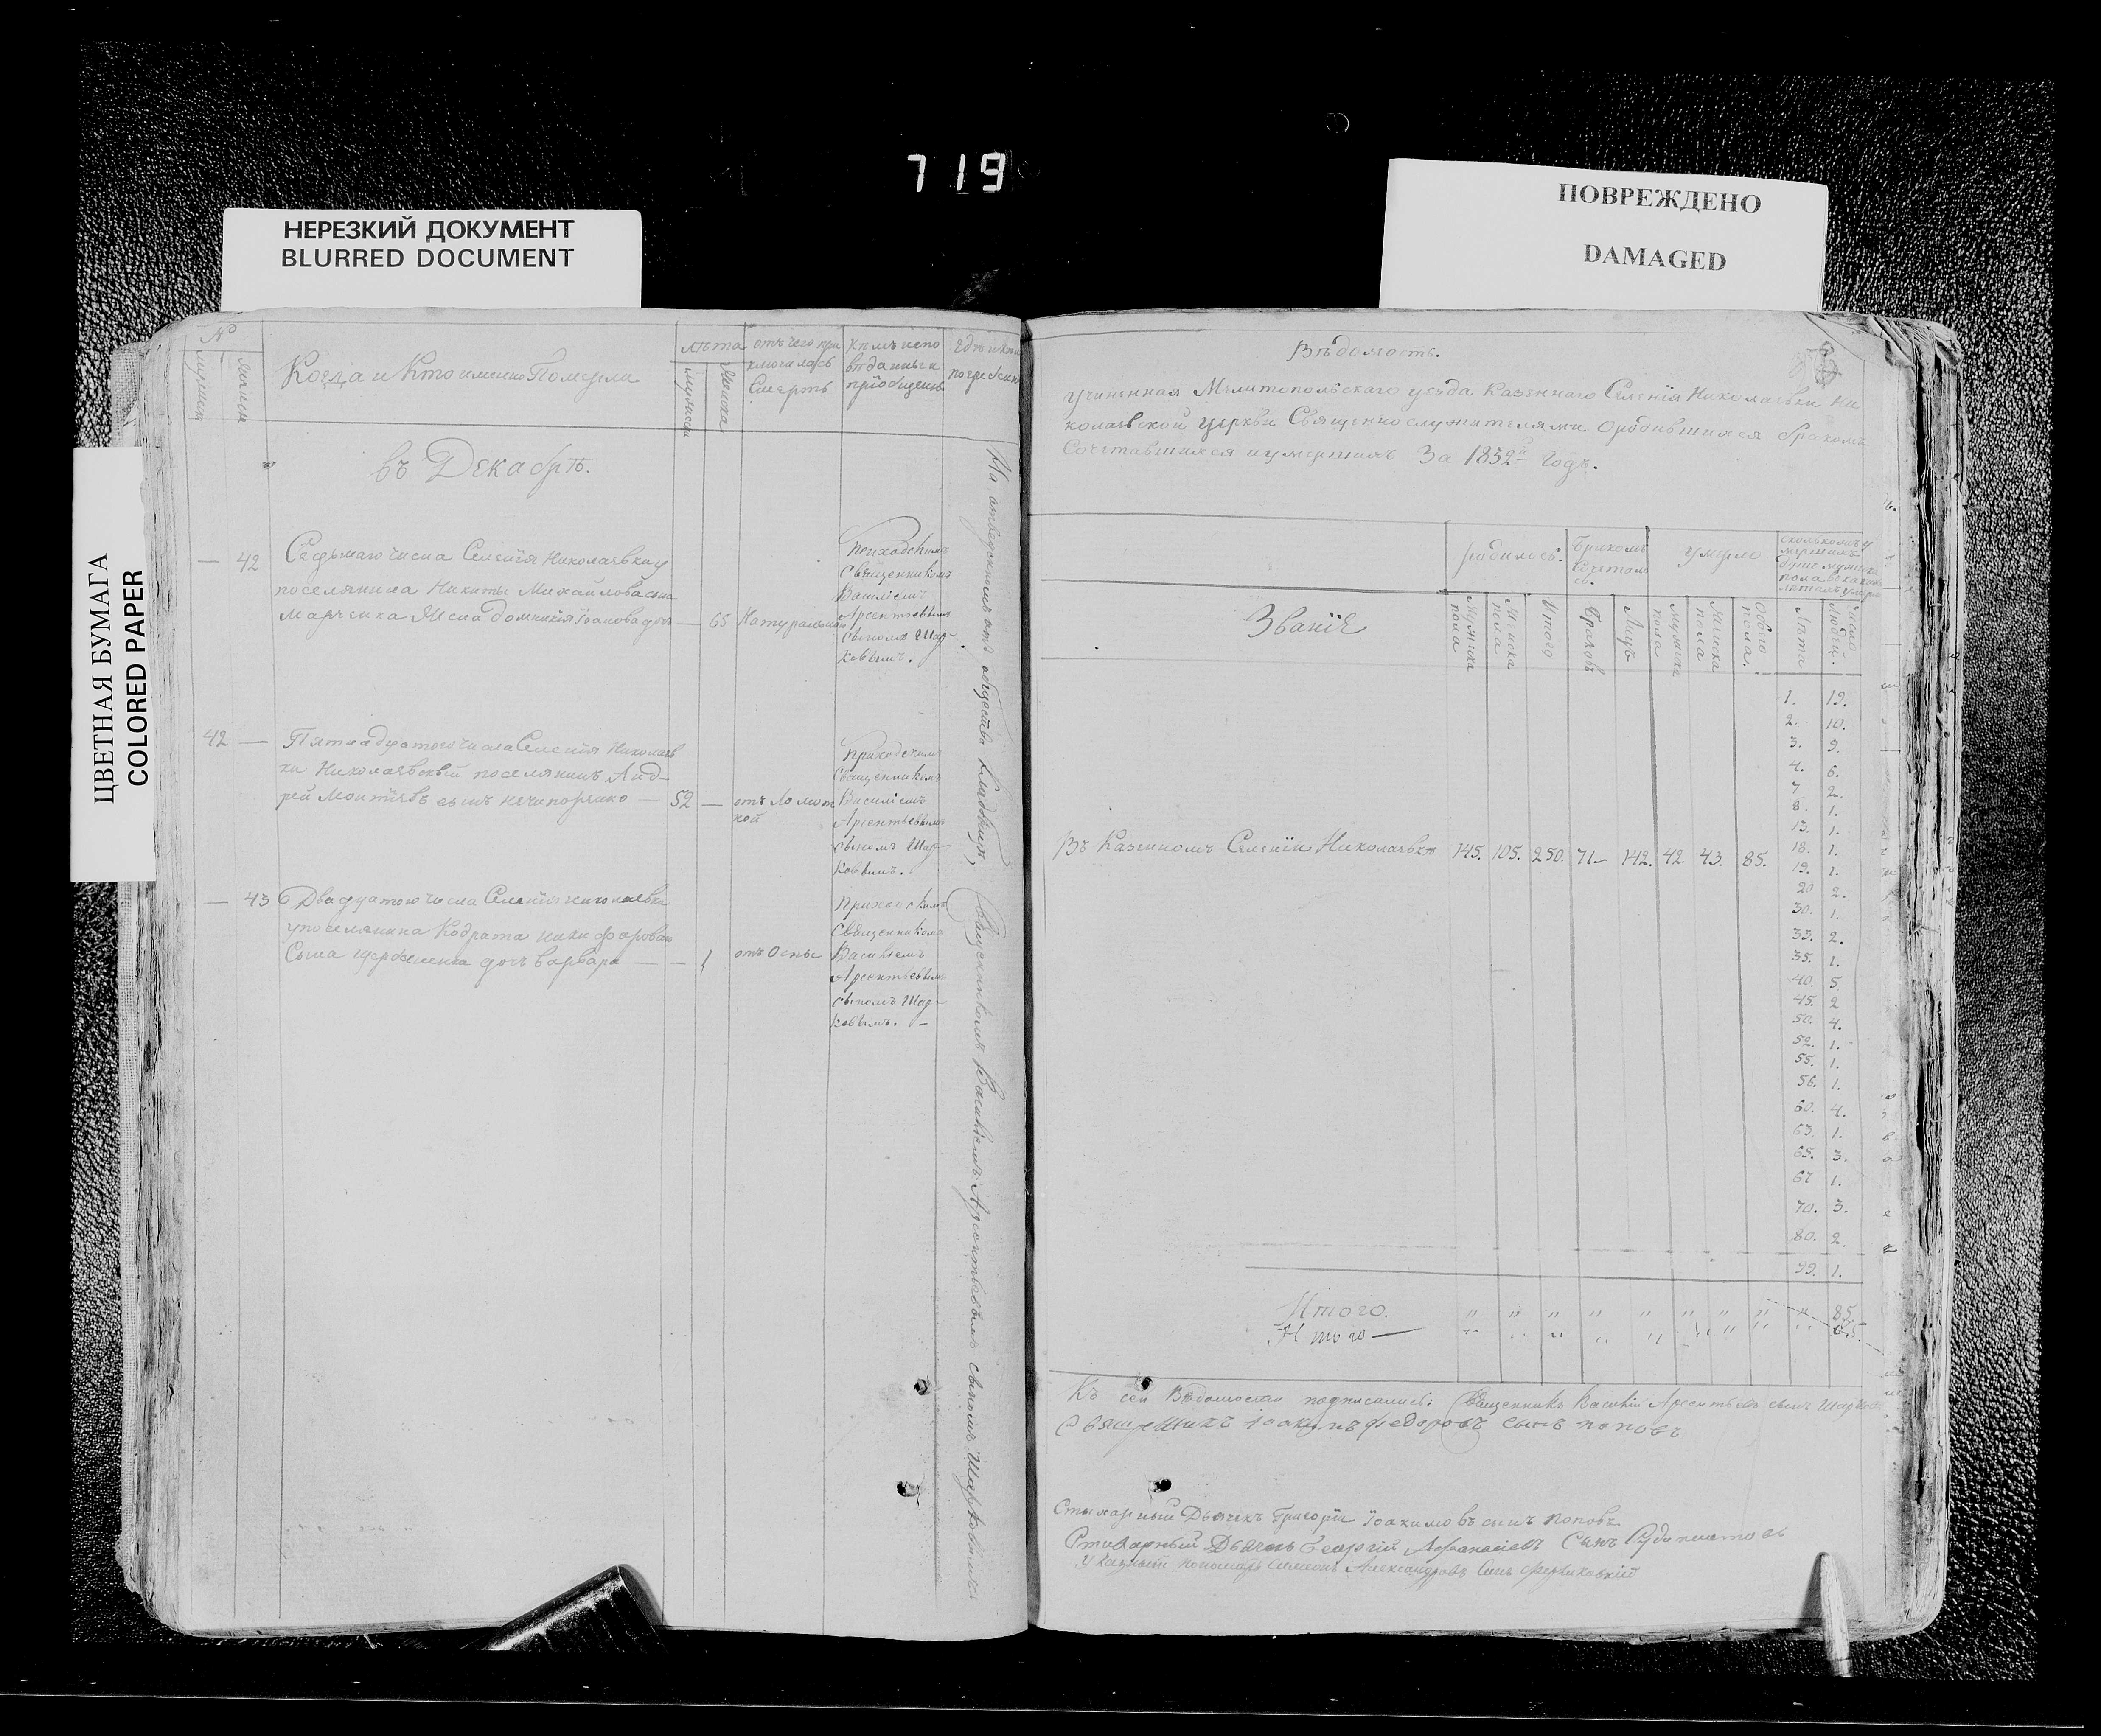 719
НЕРЕЗКИЙ ДОКУМЕНТ
BLURRED DOCUMENT
ПОВРЕЖДЕНО
DAMAGED
ЦВЕТНАЯ БУМАГА
COLORED PAPER
№
мужска
женска
Когда и Кто именно Померли
лѣта
мужска
Женска
отъ чего при
ключилась
Смерть
Кѣмъ испо
вѣданы и
пріобщены
Гдѣ и кѣмъ
погребены
въ Декабрѣ.
— 42
Седьмаго числа Селенія Николаевки у
поселянина Никиты Михайлова сына
Марченка Жена Домникія Іоанова дочь — 65 Натуральная
Приходскимъ
Священникомъ
Василіемъ
Арсентьевымъ
сыномъ Шар-
ковымъ.
42 —
Пятнадцатого числа Селенія Николаев
ки Николаевскій поселянинъ Анд-
рей Моитѣевъ сынъ Нечипоренко — 52 — отъ Ломот
кой
Приходскимъ
Священникомъ
Василіемъ
Арсентьевымъ
сыномъ Шар-
ковымъ.
— 43
Двадцатого числа Селенія Николаевки
упоселянина Кодрата Никифорова
Сына Щербленка дочь Варвара — — 1 отъ Оспы
Приходскимъ
Священникомъ
Василіемъ
Арсентьевымъ
сыномъ Шар-
ковымъ. —
На отведенномъ отъ общества кладбищѣ, Священникомъ Василіемъ Арсентьевымъ сыномъ Шарковымъ
Вѣдомость.
Учиненная Мелитопольскаго уезда Казеннаго Селенія Николаевки Ни
колаевской Церкви Священнослужителями о родившихся бракомъ
Сочетавшихся и умершихъ За 1832й Годъ.
Званіе
родилось.
Мужска пола
Женска пола
Итого
Бракомъ
сочеталось.
Браковъ
Лицъ
умерло
мужска пола
Женска пола
Обоего пола.
Лѣта
Число Людей.
Въ Казенномъ Селеніи Николаевкѣ 145. 105. 250. 71— 142. 42. 43. 85.
1. 19.
2. 10.
3. 9.
4. 6.
7 2.
8. 1.
13. 1.
18. 1.
19. 1.
20 2.
30. 1.
33. 2.
35. 1.
40. 5.
45. 2
50. 4.
52. 1.
55. 1.
56. 1.
60. 4.
63. 1.
65. 3.
67 1.
70. 3.
80. 2.
99. 1.
Итого. " " " " " " " " " 85.
Итого — " " " " " " " " "
Къ сей Вѣдомости подписались: Священникъ Василій Арсентьевъ сынъ Шарковъ
Священникъ Іоакимъ Федоровъ сынъ Поповъ
Стихарный Дьячекъ Григорій Іоакимовъ сынъ Поповъ
Стихарный Дьячекъ Георгій Афанасіевъ Сынъ
Указный пономарь Симеонъ Александровъ Сынъ